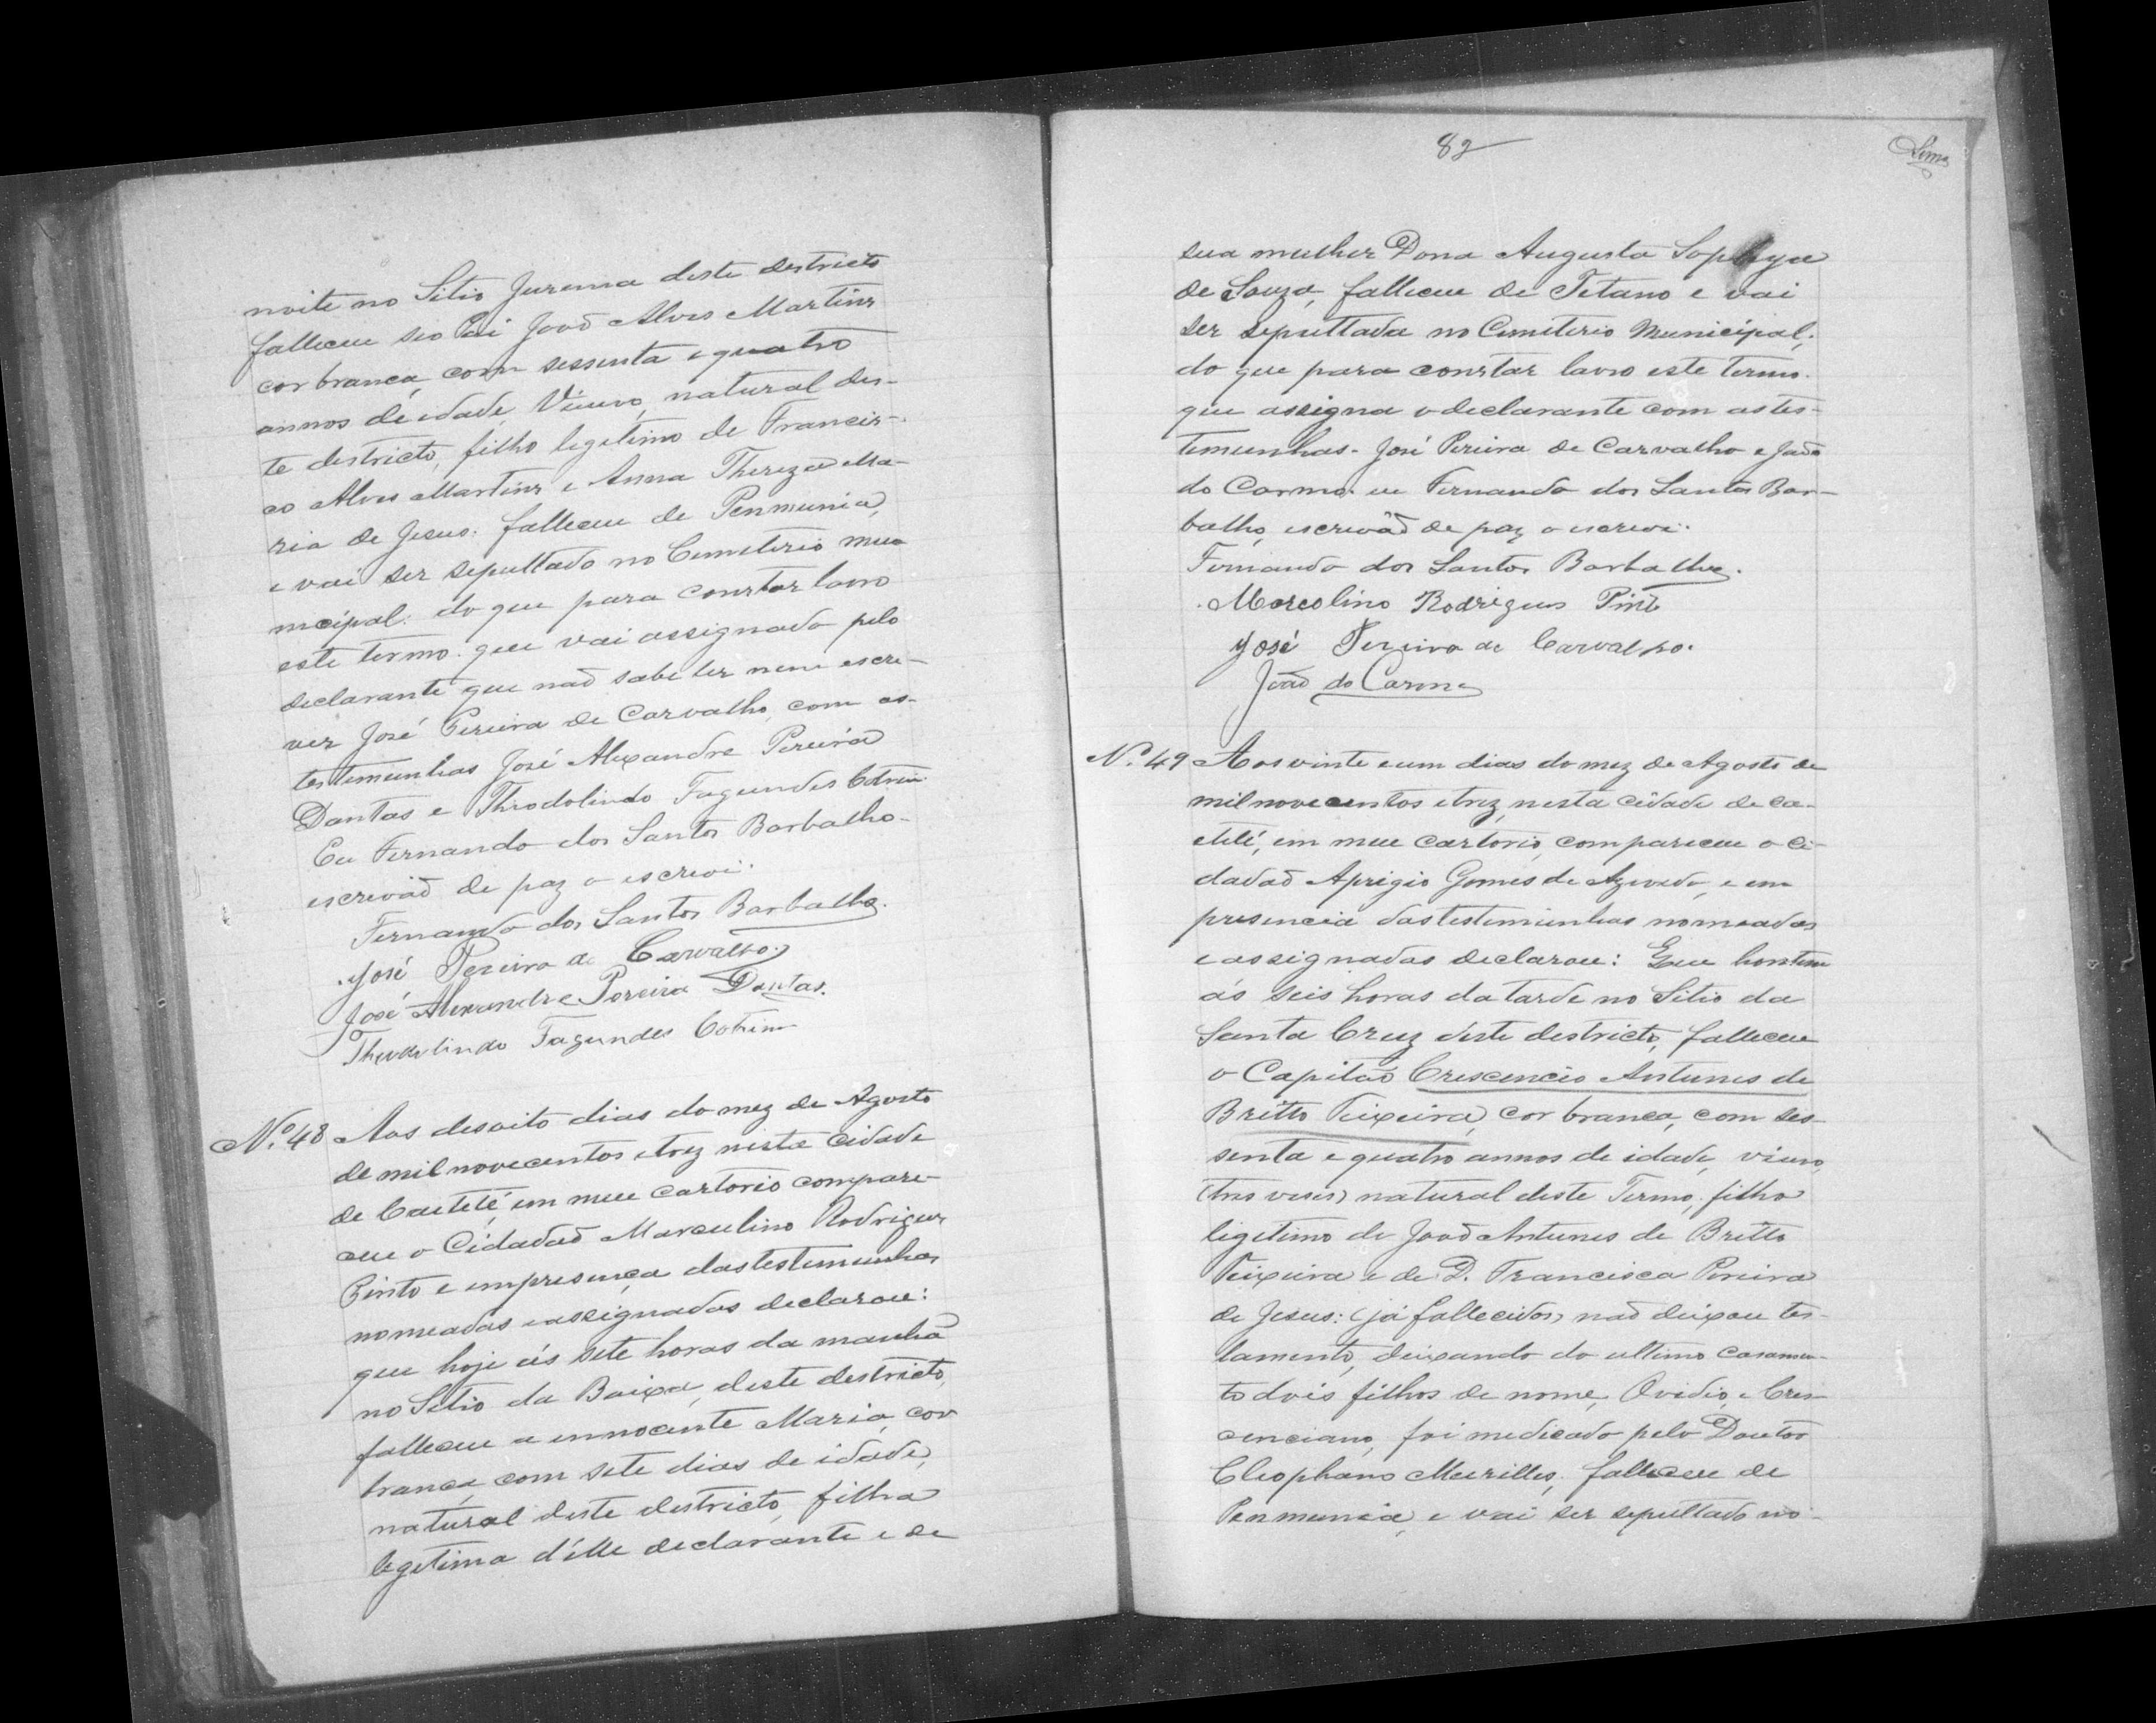 noite no Sitio Jurema deste destricto
falleceu seo Pai João Alves Martins
cor branca, com sessenta e quatro
annos de idade, Viuvo, natural des-
te destricto, filho legitimo de Francis-
co Alves Martins e Anna Thereza Ma-
ria de Jesus: falleceu de Penmunia,
e vai ser sepultado no Cemiterio mu
nicipal: do que para constar lavro
este termo. que vai assignado pelo
declarante que naõ sabe ler nem escre-
ver José Pereira de Carvalho, com as-
testemunhas José Alexandre Pereira
Dantas e Theodolindo Fagundes Cotrim
Eu Fernando dos Santos Barbalho-
escrivaõ de paz o escrevi.
Fernando dos Santos Barbalho.
José Pereira de Carvalho.
José Alexandre Pereira Dantas.
Theodolindo Fagundes Cotrim
Nº. 48 Aos desoito dias do mez de Agosto
de mil novecentos e trez nesta Cidade
de Caeteté, em meu cartorio compare-
ceu o Cidadaõ Marculino Rodrigues
Pinto e em presença das testemunhas
nomeadas e assignadas declarou:
que hoje ás sete horas da manhã
no Sitio da Baixa, deste destricto,
falleceu a innocente Maria, cor
branca, com sete dias de idade,
natural deste destricto, filha
legetima d'élle declarante e de
82
Lima
sua mulher Dona Augusta Sophya
de Souza, falleceu de Tetano e vai
ser sepultada no Cemiterio Municipal;
do que para constar lavro este termo.
que assigna o declarante com as tes-
temunhas. José Pereira de Carvalho e João
do Carmo. eu Fernando dos Santos Bar-
balho, escrivaõ de paz o escrevi.
Fernando dos Santos Barbalho.
Marcolino Rodrigues Pinto
José Pereira de Carvalho.
João do Carmo
Nº. 49 Aos vinte e um dias do mez de Agosto de
mil novecentos e trez, nesta cidade de Ca-
etité, em meu cartorio, compareceu o Ci-
dadaõ Aprigio Gomes de Azevedo, e em
presencia das testemunhas nomeadas
e assignadas declarou: Que hontem
ás seis horas da tarde no Sitio da
Santa Cruz deste destricto, falleceu
o Capitaõ Crescencio Antunes de
Britto Teixeira, cor branca, com ses-
senta e quatro annos de idade, viuvo,
(tres veses) natural deste Termo, filho
ligitimo de Joaõ Antunes de Britto
Teixeira e de D. Francisca Pereira
de Jesus: (já fallecidos) naõ deixou tes-
tamento, deixando do ultimo casamen-
to dois filhos de nome, Ovidio, e Cres-
cenciano, foi medicado pelo Doutor
Cleophano Meirilles, falleceu de
Penmunia, e vai ser sepultado no